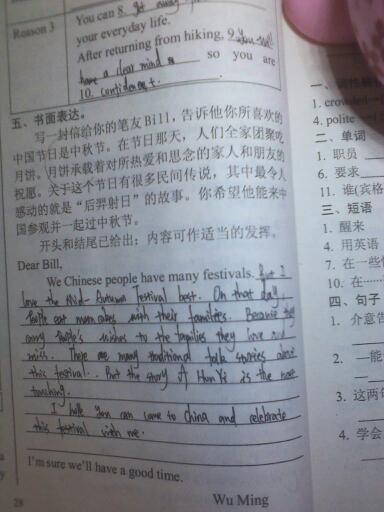 You can 8. get away
Reason 3
your everyday life.
After returning from hiking, 9. you will
have a clear mind so you are
10. confident.
五、书面表达。
写一封信给你的笔友Bill，告诉他你所喜欢的
中国节日是中秋节。在节日那天，人们全家团聚吃
月饼。月饼承载着对所热爱和思念的家人和朋友的
祝愿。关于这个节日有很多民间传说，其中最令人
感动的就是“后羿射日”的故事。你希望他能来中
国参观并一起过中秋节。
开头和结尾已给出；内容可作适当的发挥。
Dear Bill,
We Chinese people have many festivals. But I
love the Mid-Autumn Festival best. On that day,
eat moon cakes with their families. Because they
carry wishes to the families they love and
miss. There are many traditional stories about
this festival. But the story of Hou Yi is the most
touching.
I hope you can come to China and celebrate
this festival with me.
I'm sure we'll have a good time.
Wu Ming
28
1. crowded
4. polite
二、单词
1. 职员
6. 要求
11. 谁(宾格
三、短语
1. 醒来
4. 用英语
7. 在一些
10. 在
四、句子
1. 介意
2. —能
3. 这两
4. 学会